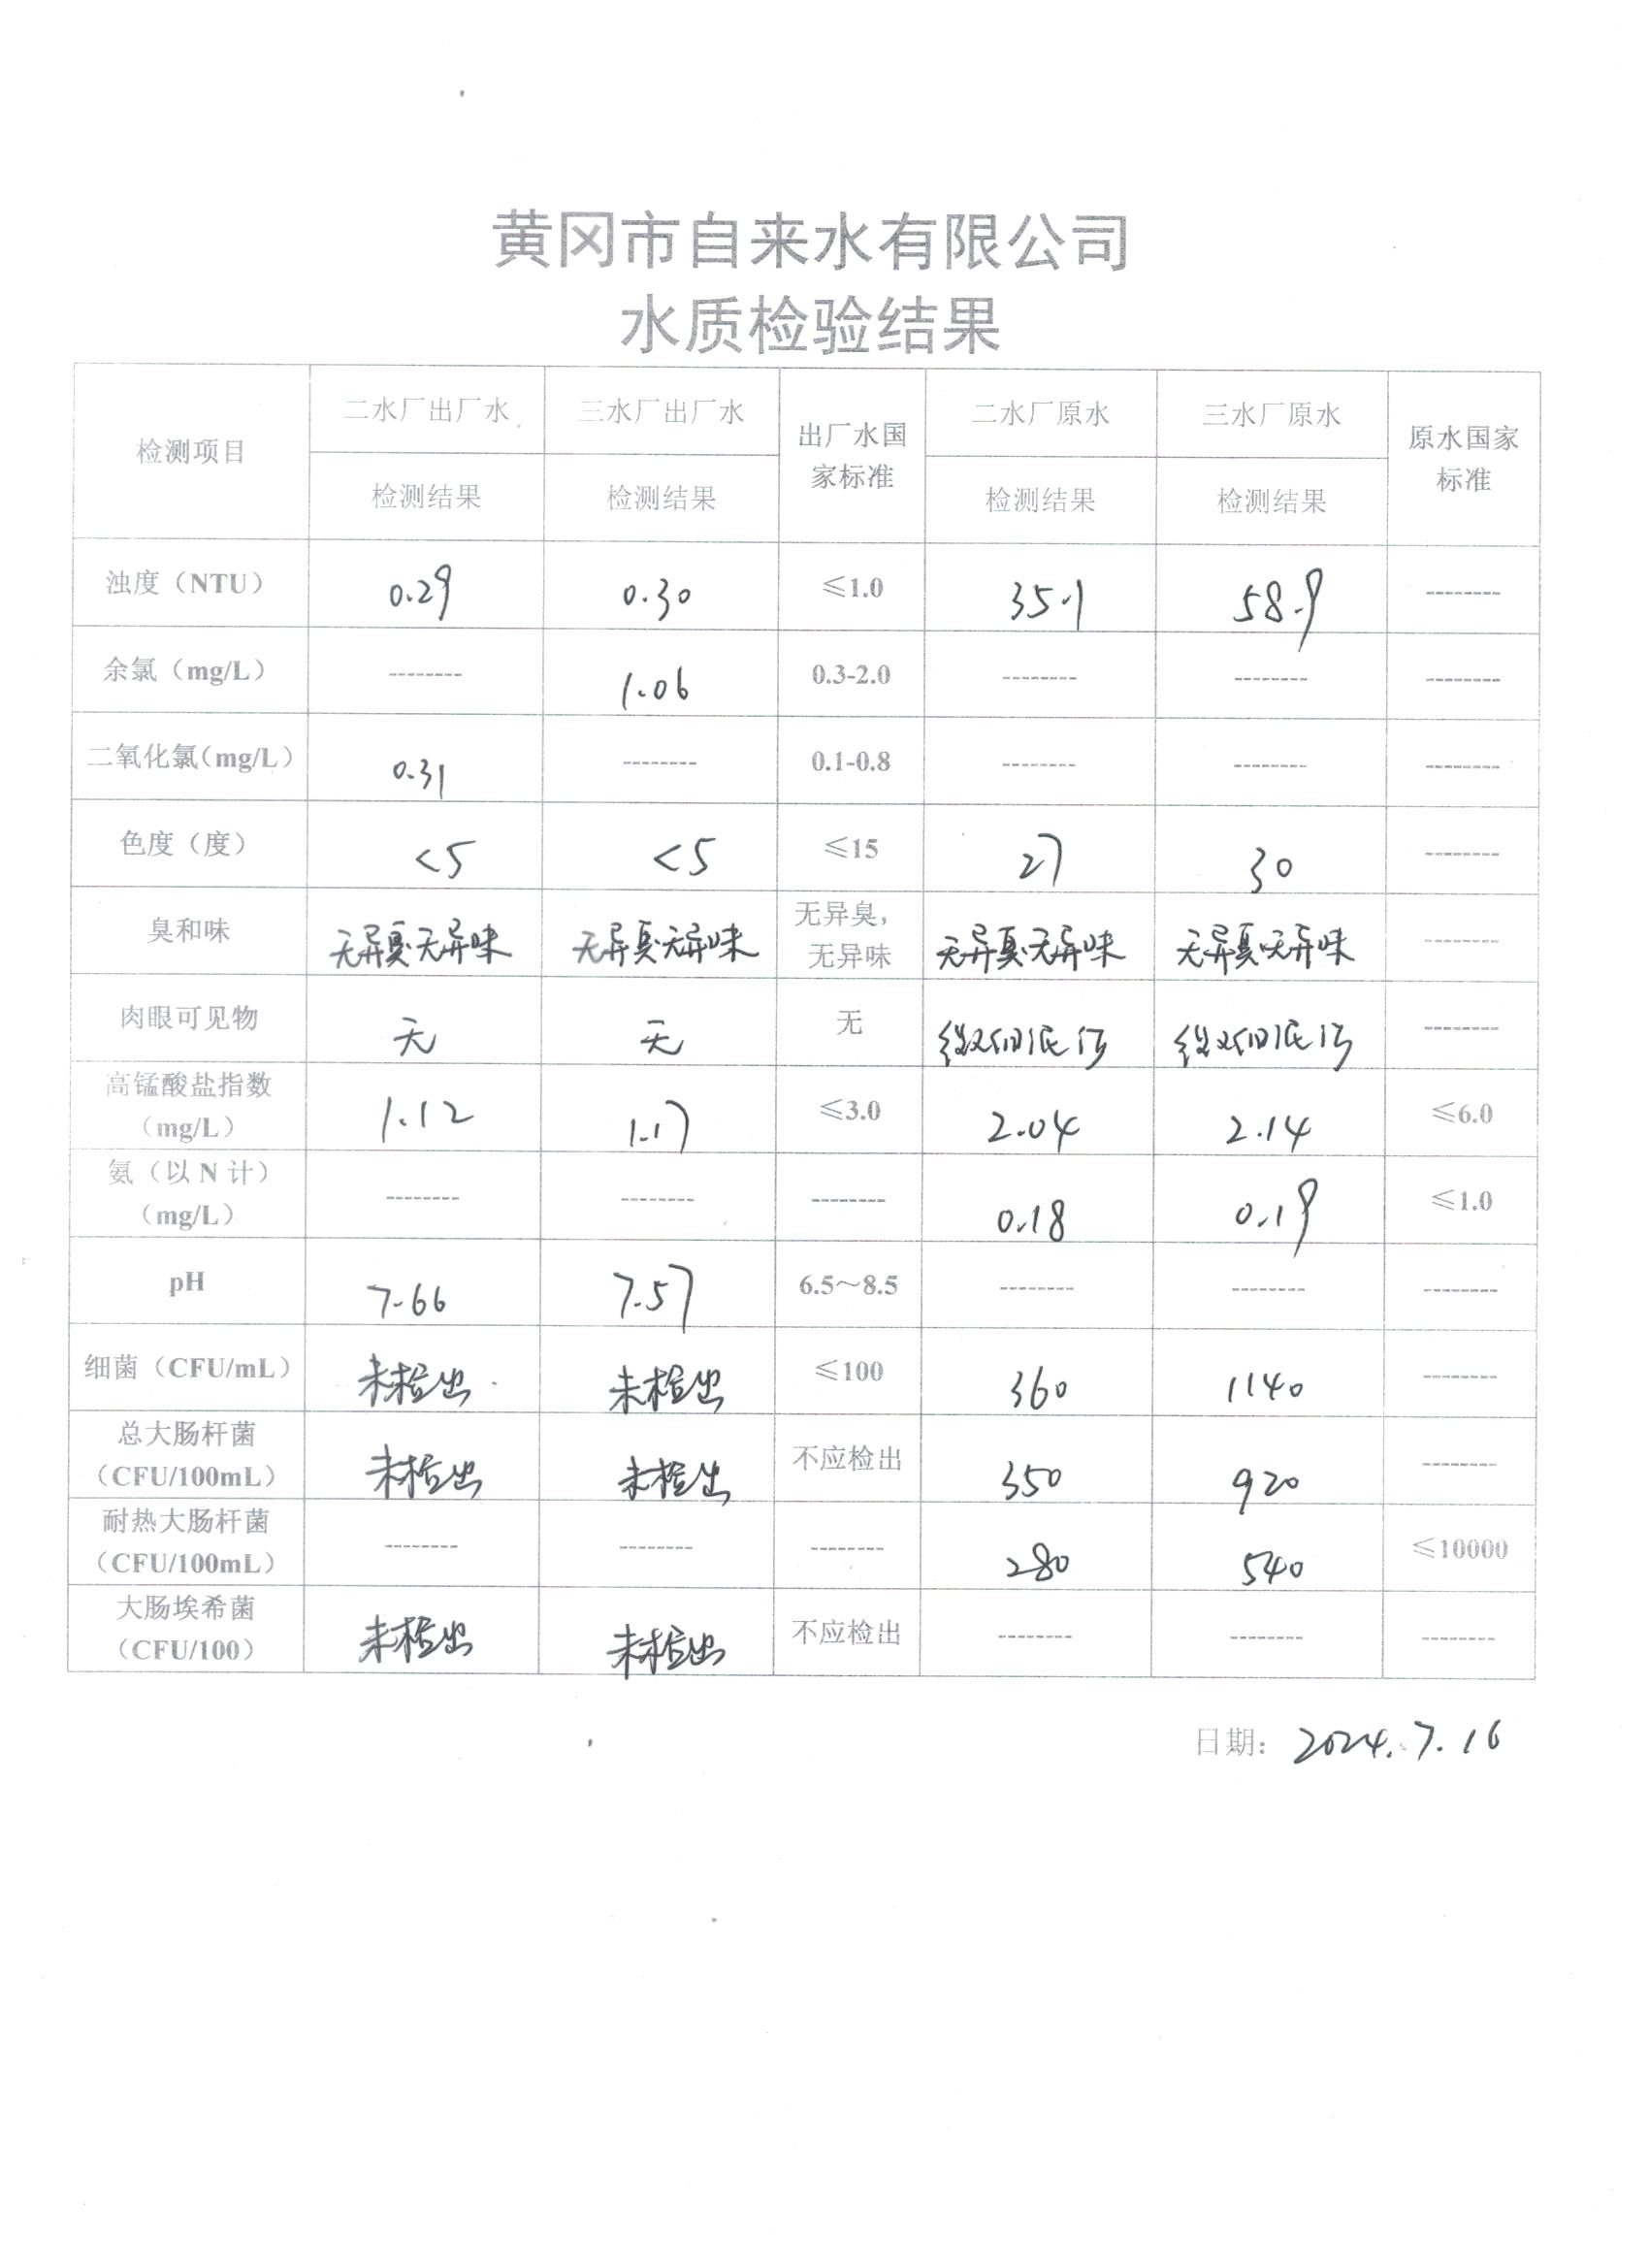 黄冈市自来水有限公司
水质检验结果
检测项目 二水厂出厂水 三水厂出厂水 出厂水国家标准 二水厂原水 三水厂原水 原水国家标准
检测结果 检测结果 检测结果 检测结果
浊度（NTU） 0.29 0.30 ≤1.0 35.1 58.9 --------
余氯（mg/L） -------- 1.06 0.3-2.0 -------- -------- --------
二氧化氯(mg/L) 0.31 -------- 0.1-0.8 -------- -------- --------
色度（度） <5 <5 ≤15 27 30 --------
臭和味 无异臭.无异味 无异臭.无异味 无异臭，无异味 无异臭.无异味 无异臭.无异味 --------
肉眼可见物 无 无 无 微细泥沙 微细泥沙 --------
高锰酸盐指数（mg/L） 1.12 1.17 ≤3.0 2.04 2.14 ≤6.0
氨（以 N 计）（mg/L） -------- -------- -------- 0.18 0.19 ≤1.0
pH 7.66 7.57 6.5～8.5 -------- -------- --------
细菌（CFU/mL） 未检出 未检出 ≤100 360 1140 --------
总大肠杆菌（CFU/100mL） 未检出 未检出 不应检出 350 920 --------
耐热大肠杆菌（CFU/100mL） -------- -------- -------- 280 540 ≤10000
大肠埃希菌（CFU/100） 未检出 未检出 不应检出 -------- -------- --------
日期： 2024.7.16